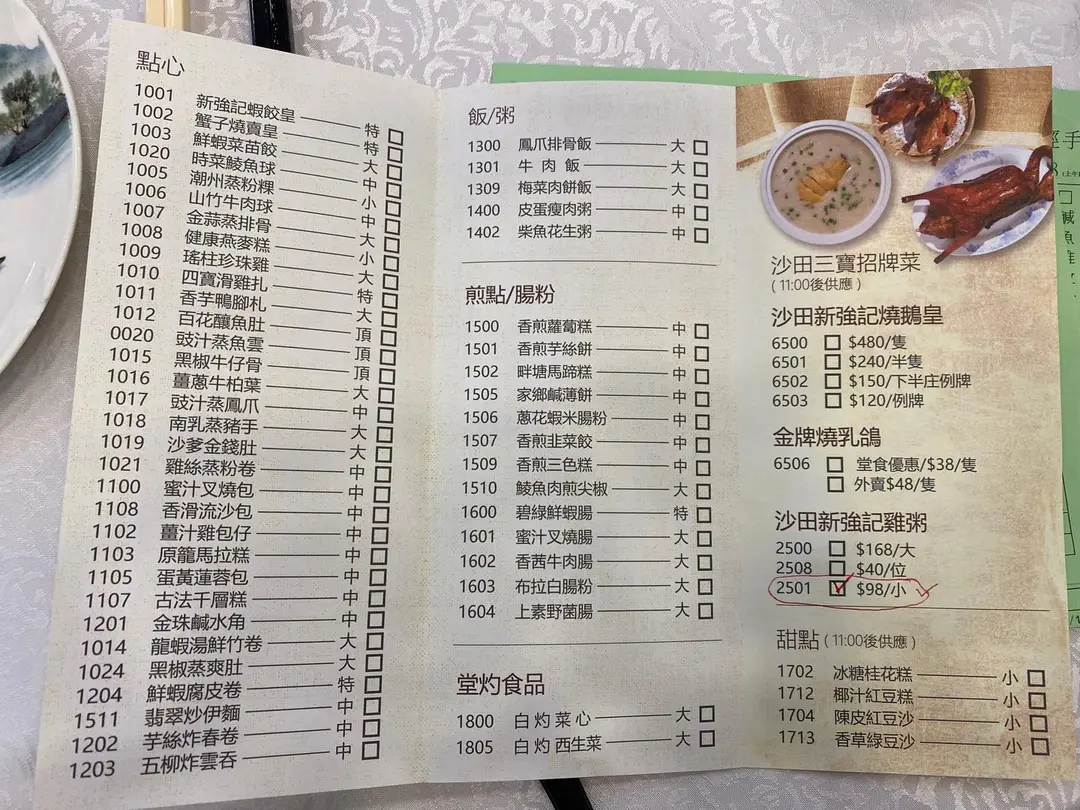 點心
1001 新強記蝦餃皇 特
1002 蟹子燒賣皇 特
1003 鮮蝦菜苗餃 大
1020 時菜鯪魚球 中
1005 潮州蒸粉粿 小
1006 山竹牛肉球 中
1007 金蒜蒸排骨 大
1008 健康燕麥糕 小
1009 瑤柱珍珠雞 大
1010 四寶滑雞扎 特
1011 香芋鴨腳札 大
1012 百花釀魚肚 頂
0020 豉汁蒸魚雲 頂
1015 黑椒牛仔骨 頂
1016 薑蔥牛柏葉 大
1017 豉汁蒸鳳爪 中
1018 南乳蒸豬手 大
1019 沙爹金錢肚 大
1021 雞絲蒸粉卷 中
1100 蜜汁叉燒包 中
1108 香滑流沙包 中
1102 薑汁雞包仔 中
1103 原籠馬拉糕 中
1105 蛋黃蓮蓉包 中
1107 古法千層糕 中
1201 金珠鹹水角 中
1014 龍蝦湯鮮竹卷 大
1024 黑椒蒸爽肚 大
1204 鮮蝦腐皮卷 特
1511 翡翠炒伊麵 中
1202 芋絲炸春卷 中
1203 五柳炸雲吞 中
飯/粥
1300 鳳爪排骨飯 大
1301 牛肉飯 大
1309 梅菜肉餅飯 大
1400 皮蛋瘦肉粥 中
1402 柴魚花生粥 中
煎點/腸粉
1500 香煎蘿蔔糕 中
1501 香煎芋絲餅 中
1502 畔塘馬蹄糕 中
1505 家鄉鹹薄餅 中
1506 蔥花蝦米腸粉 中
1507 香煎韭菜餃 中
1509 香煎三色糕 中
1510 鯪魚肉煎尖椒 大
1600 碧綠鮮蝦腸 特
1601 蜜汁叉燒腸 大
1602 香茜牛肉腸 大
1603 布拉白腸粉 大
1604 上素野菌腸 大
堂灼食品
1800 白灼菜心 大
1805 白灼西生菜 大
沙田三寶招牌菜
(11:00後供應)
沙田新強記燒鵝皇
6500 $480/隻
6501 $240/半隻
6502 $150/下半庄例牌
6503 $120/例牌
金牌燒乳鴿
6506 堂食優惠/$38/隻
外賣$48/隻
沙田新強記雞粥
2500 $168/大
2508 $40/位
2501 $98/小
甜點 (11:00後供應)
1702 冰糖桂花糕 小
1712 椰汁紅豆糕 小
1704 陳皮紅豆沙 小
1713 香草綠豆沙 小